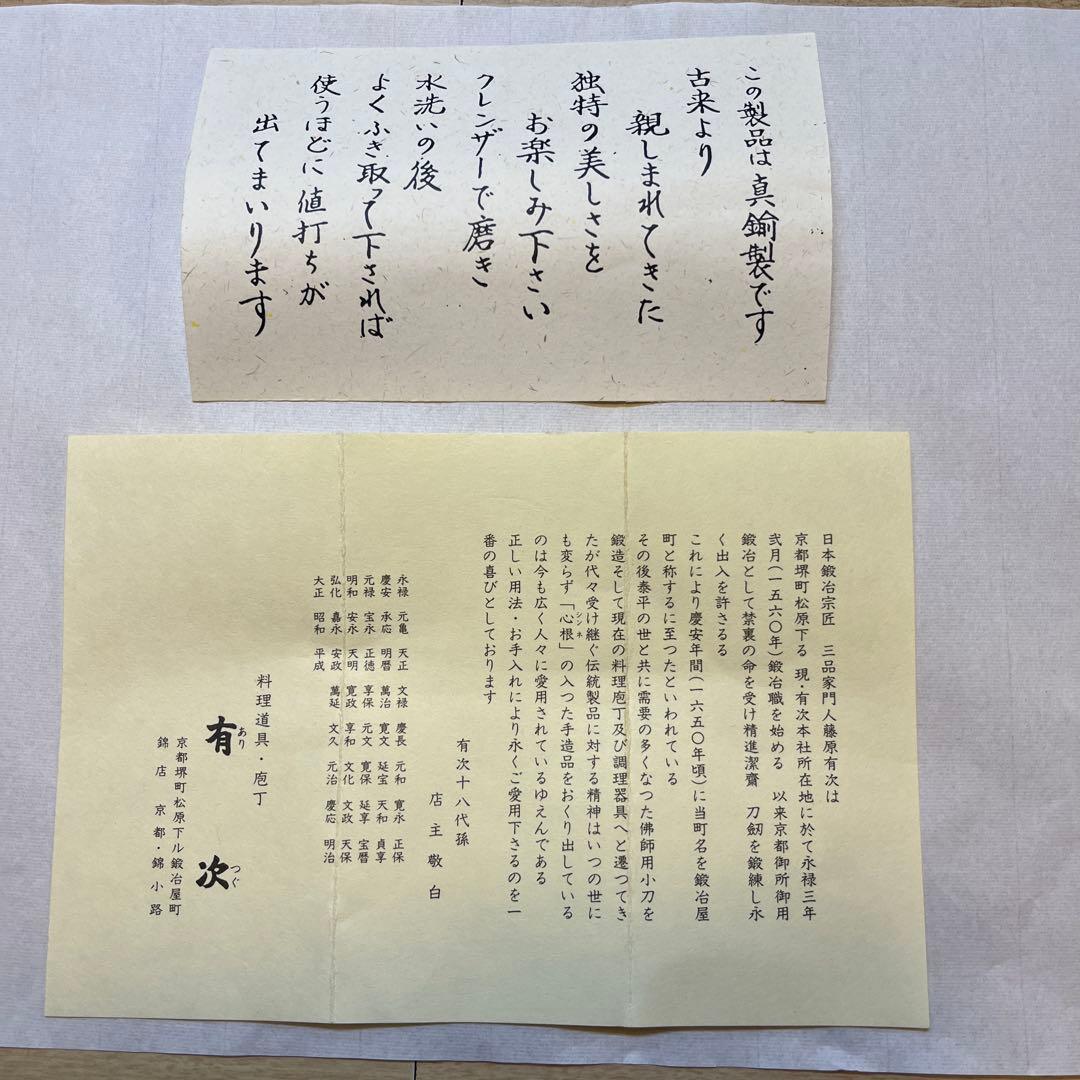 この製品は真鍮製です
古来より
親しまれてきた
独特の美しさを
お楽しみ下さい
クレンザーで磨き
水洗いの後
よくふき取って下されば
使うほどに値打ちが
出てまいります
日本鍛冶宗匠 三品家門人藤原有次は
京都堺町松原下る 現・有次本社所在地に於て永禄三年
弐月(一五六〇年)鍛冶職を始める 以来京都御所御用
鍛冶として禁裏の命を受け精進潔齋 刀劔を鍛練し永
く出入を許さるる
これにより慶安年間(一六五〇年頃)に当町名を鍛冶屋
町と称するに至つたといわれている
その後泰平の世と共に需要の多くなつた佛師用小刀を
鍛造そして現在の料理庖丁及び調理器具へと遷つてき
たが代々受け継ぐ伝統製品に対する精神はいつの世に
も変らず「心根」の入つた手造品をおくり出している
シンネ
のは今も広く人々に愛用されているゆえんである
正しい用法・お手入れにより永くご愛用下さるのを一
番の喜びとしております
有次十八代孫
店主敬白
永禄 元亀 天正 文禄 慶長 元和 寛永 正保
慶安 承応 明暦 萬治 寛文 延宝 天和 貞享
元禄 宝永 正徳 享保 元文 寛保 延享 宝暦
明和 安永 天明 寛政 享和 文化 文政 天保
弘化 嘉永 安政 萬延 文久 元治 慶応 明治
大正 昭和 平成
料理道具・庖丁
有次
あり つぐ
京都堺町松原下ル鍛冶屋町
錦店 京都・錦小路